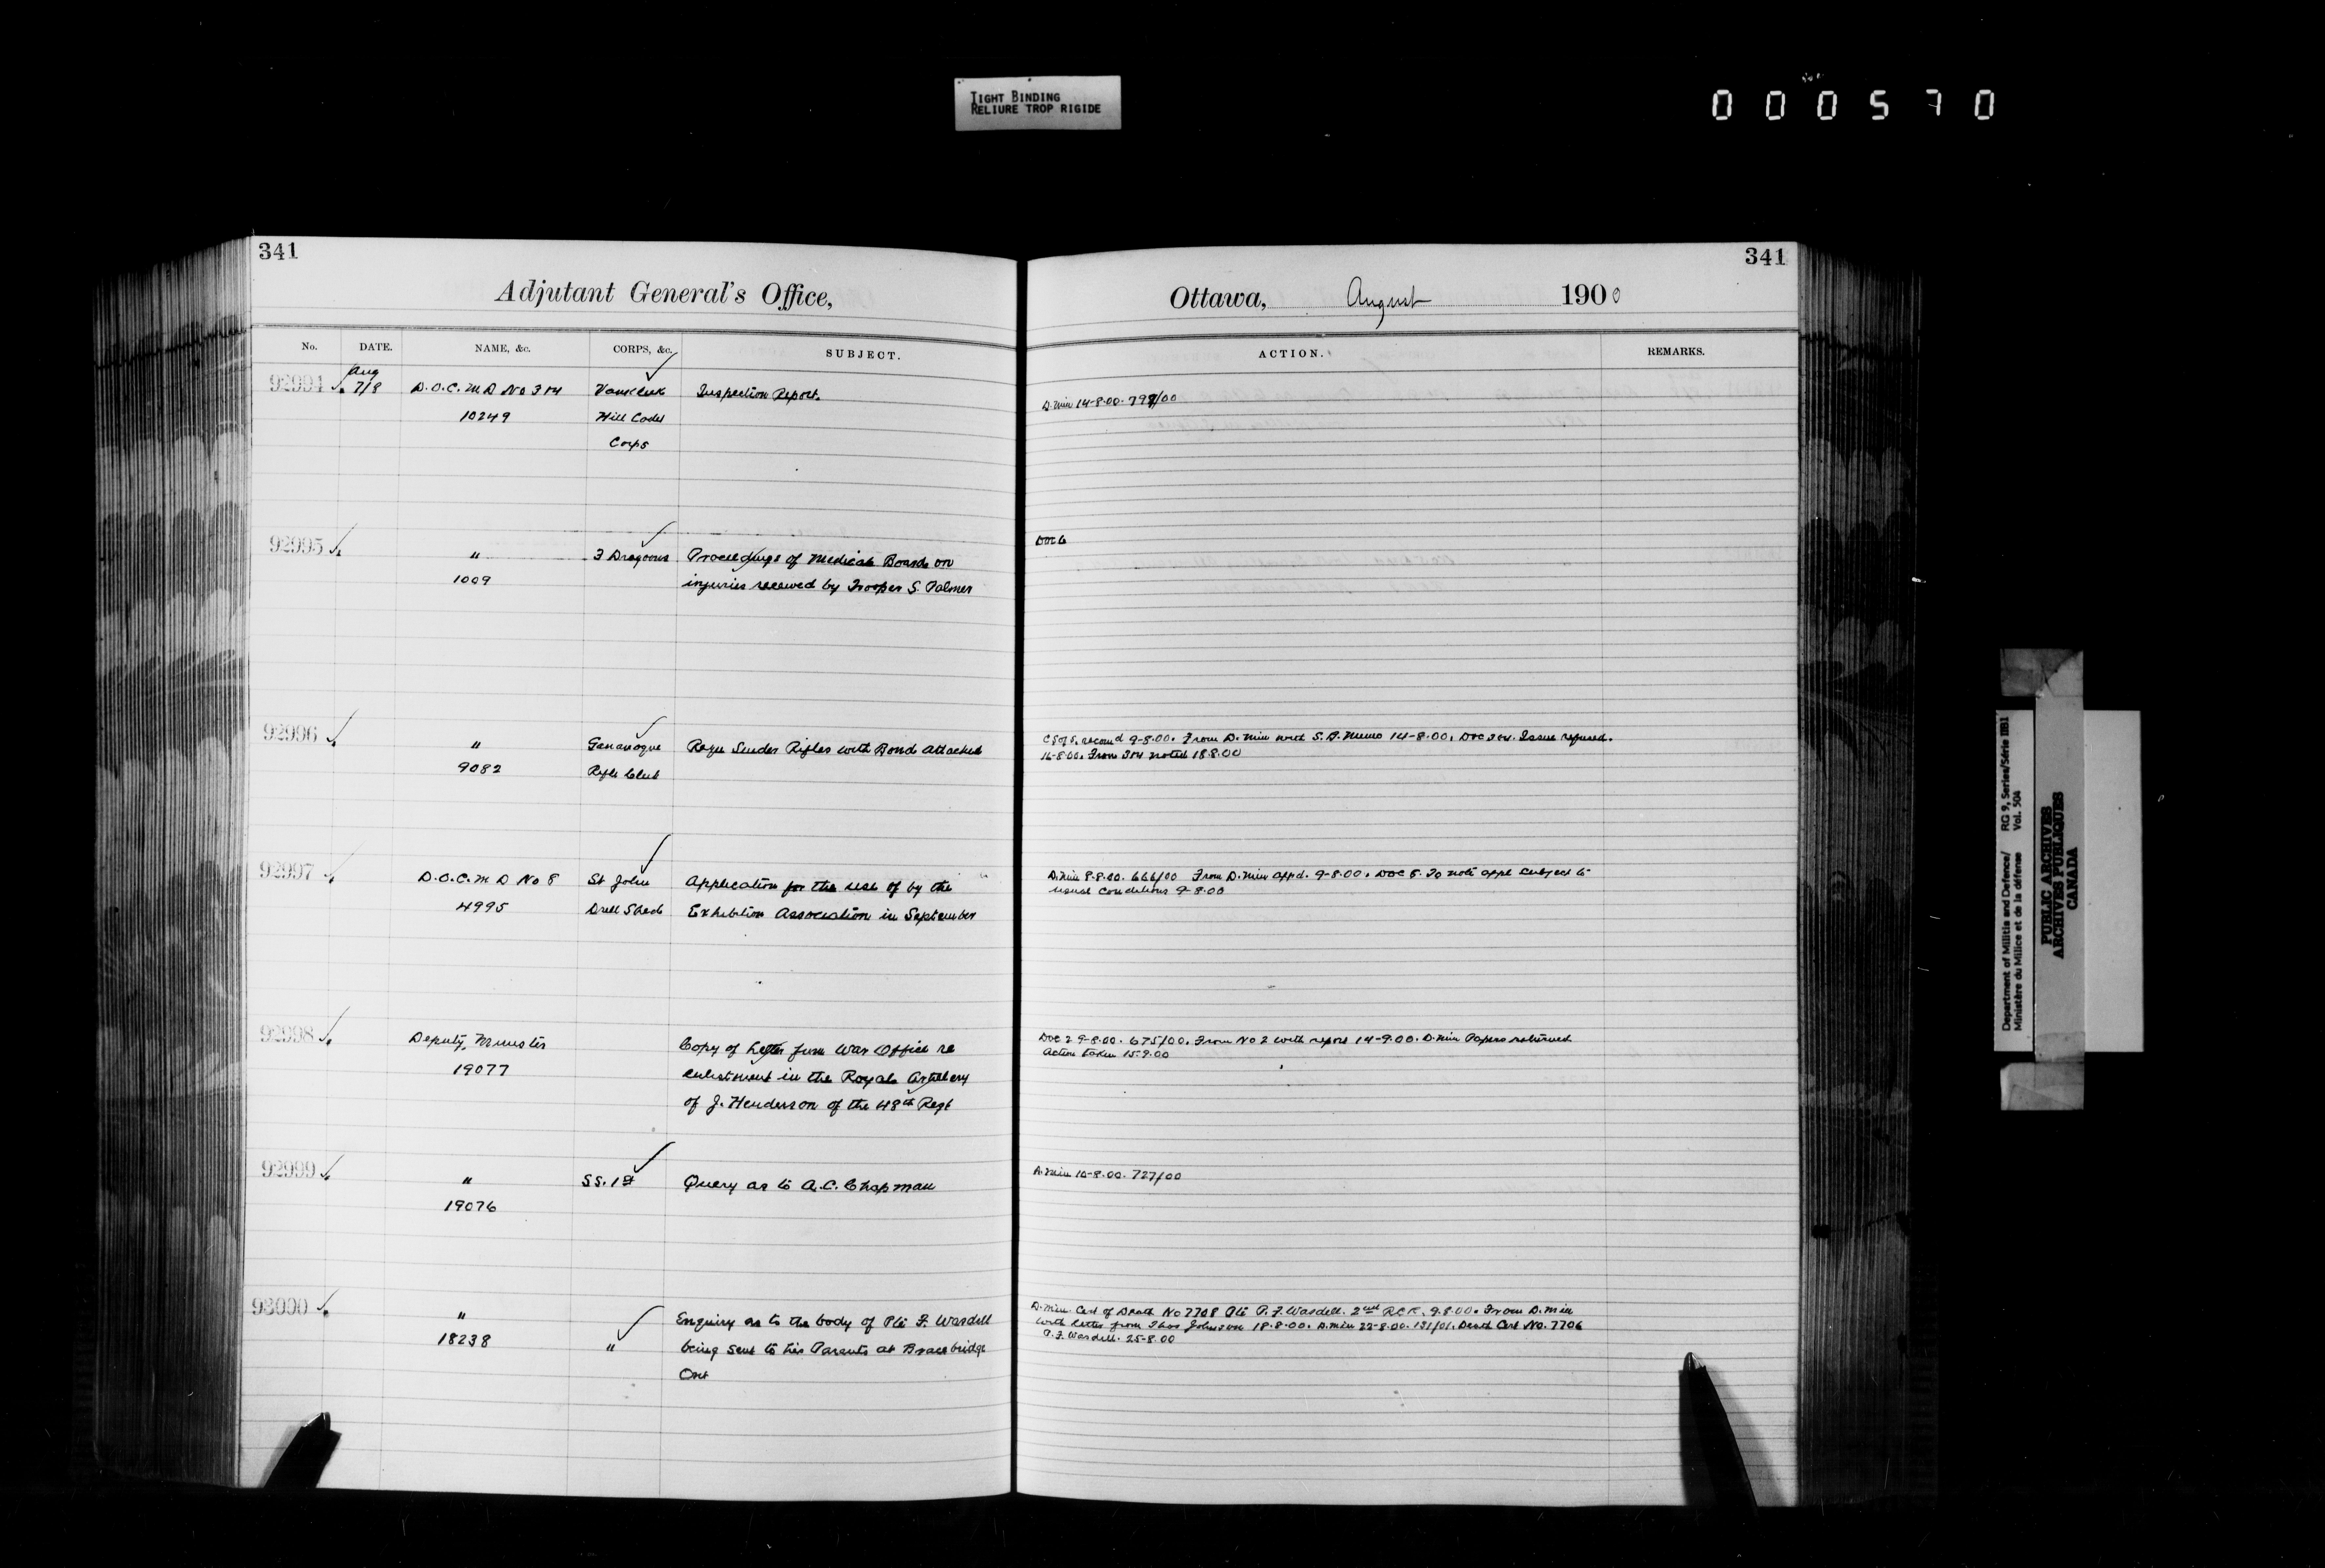 TIGHT BINDING
RELIURE TROP RIGIDE
000570
341
Adjutant General's Office,
No. DATE. NAME, &c. CORPS, &c. SUBJECT.
92994 Aug 7/8 D.O.C. M D No 3 & 4 Vankleek Inspection Report.
10249 Hill Cadet
Corps
92995 " 3 Dragoons Proceedings of Medical Board on
1009 injuries received by Trooper S. Palmer
92996 " Gananoque Requ Snider Rifles with Bond attached
9082 Rifle Club
92997 D.O.C. M D No 8 St John Application for the use of by the
4995 Drill Shed Exhibition Association in September
92998 Deputy Minister Copy of Letter from War Office re
19077 enlistment in the Royal Artillery
of J. Henderson of the 48th Regt
92999 " SS. 1st Query as to A.C. Chapman
19076
93000 " Enquiry as to the body of Pte F. Wasdell
18238 " being sent to his Parents at Bracebridge
Ont
341
Ottawa, August 1900
ACTION. REMARKS.
D. Min 14-8-00. /00
DOC 6
C S of S. recomd 9-8-00. From D. Min with S.A. Memo 14-8-00. DOC 3&4. Issue refused.
16-8-00. From 3&4 noted 18.8.00
D. Min 8-8-00. 666/00 From D. Min appd. 9-8-00. DOC 8. To note appl subject to
usual conditions 9-8-00
DOC 2 9-8-00. 675/00. From No 2 with report 14-9.00. D. Min Papers returned
Action taken 15-9.00
D. Min 10-8-00. 727/00
D. Min Cert of Death No 7708 Pte P. F. Wasdell. 2nd RCR. 9.8.00. From D. Min
with letter from Thos Johnson 18-8-00. D. Min 22-8-00. 131/01. Death Cert No. 7706
P. F. Wasdell. 25-8.00
Department of Militia and Defence/ RG 9, Series/Série IIB1
Ministère du Milice et de la défense Vol. 504
PUBLIC ARCHIVES
ARCHIVES PUBLIQUES
CANADA